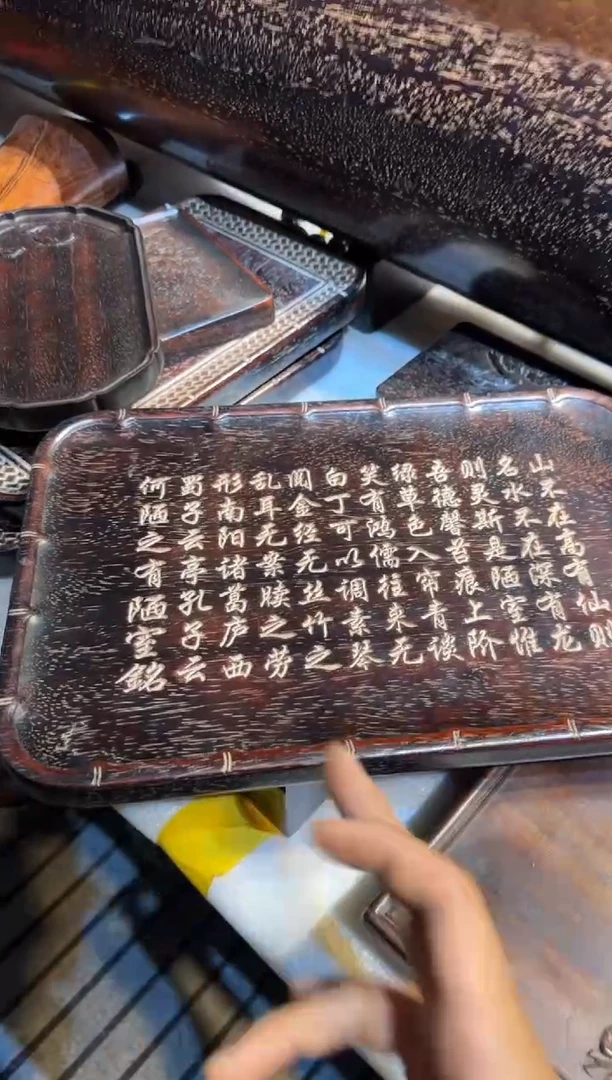 山不在高有仙则
名水不在深有龙
则灵斯是陋室惟
吾德馨苔痕上阶
绿草色入帘青谈
笑有鸿儒往来无
白丁可以调素琴
阅金经无丝竹之
乱耳无案牍之劳
形南阳诸葛庐西
蜀子云亭孔子云
何陋之有陋室銘